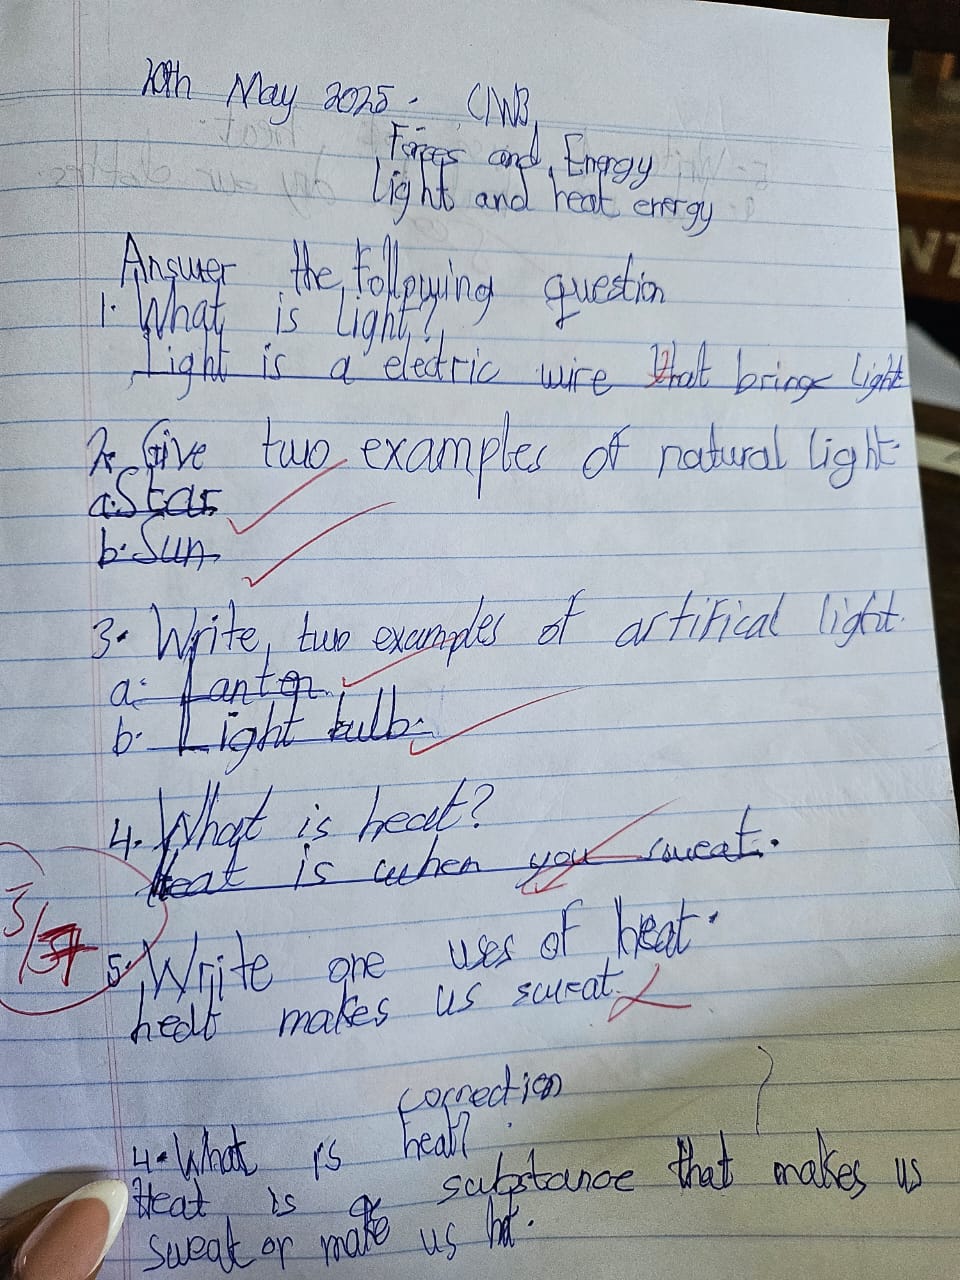 20th May 2025. CWB
Forces and Energy
Light and heat energy
Answer the following question
1. What is light?
Light is a electric wire that brings light
2. Give two examples of natural light.
a. Star
b. Sun
3. Write two examples of artifical light.
a. Lanten
b. Light bulb.
4. What is heat?
Heat is when you sweat.
5. Write one uses of heat.
heat makes us sweat.
3/7
correction
4. What is heat?
Heat is a substance that makes us
sweat or make us hot.